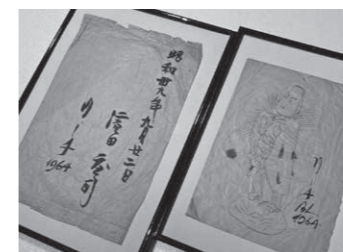 昭和卅九年九月廿二日
濱田庄司
リーチ
1964
リーチ
BL
1964